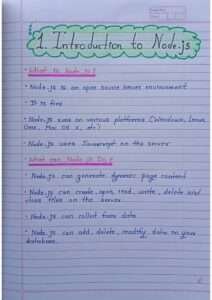 1. Introduction to Node.js
• What is Node js?
• Node.js is an open source server environment
• It is free
• Node.js runs on various platforms (Windows, Linux,
Unix, Mac OS X, etc)
• Node.js uses Javascript on the server
• What can Node.js Do?
• Node.js can generate dynamic page content
• Node.js can create, open, read, write, delete and
close files on the server.
• Node.js can collect form data
• Node.js can add, delete, modify data in your
database.